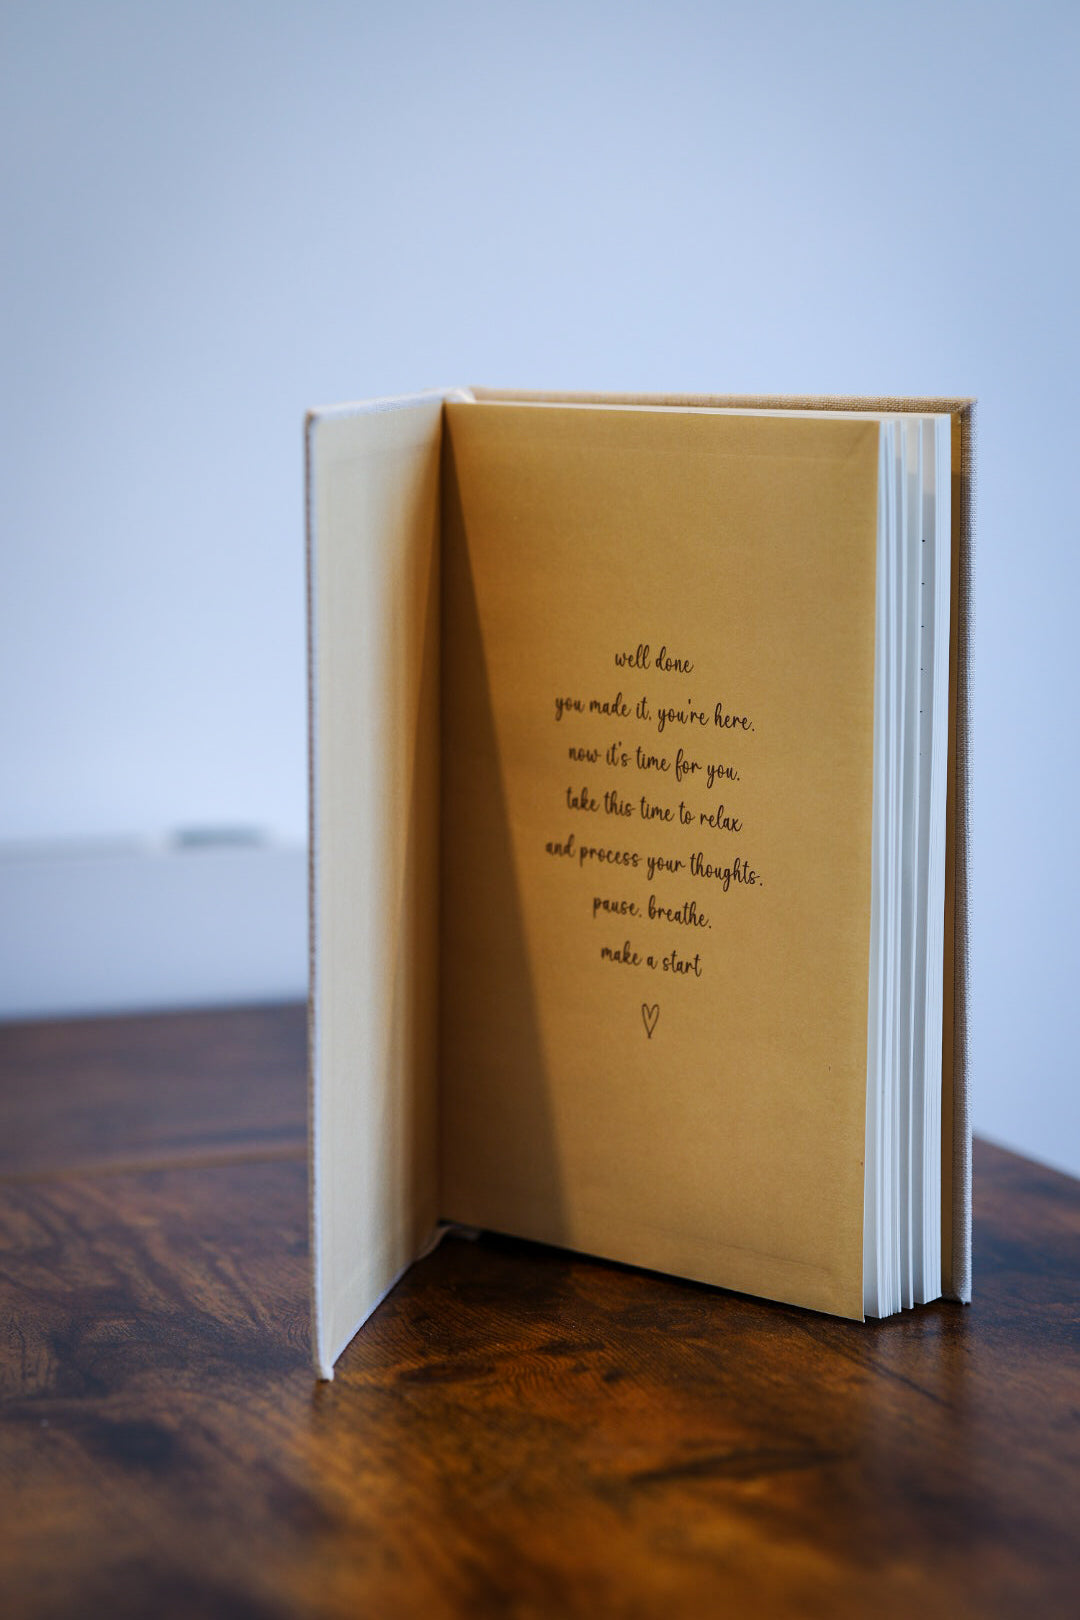 well done
you made it, you're here.
now it's time for you.
take this time to relax
and process your thoughts.
pause. breathe.
make a start